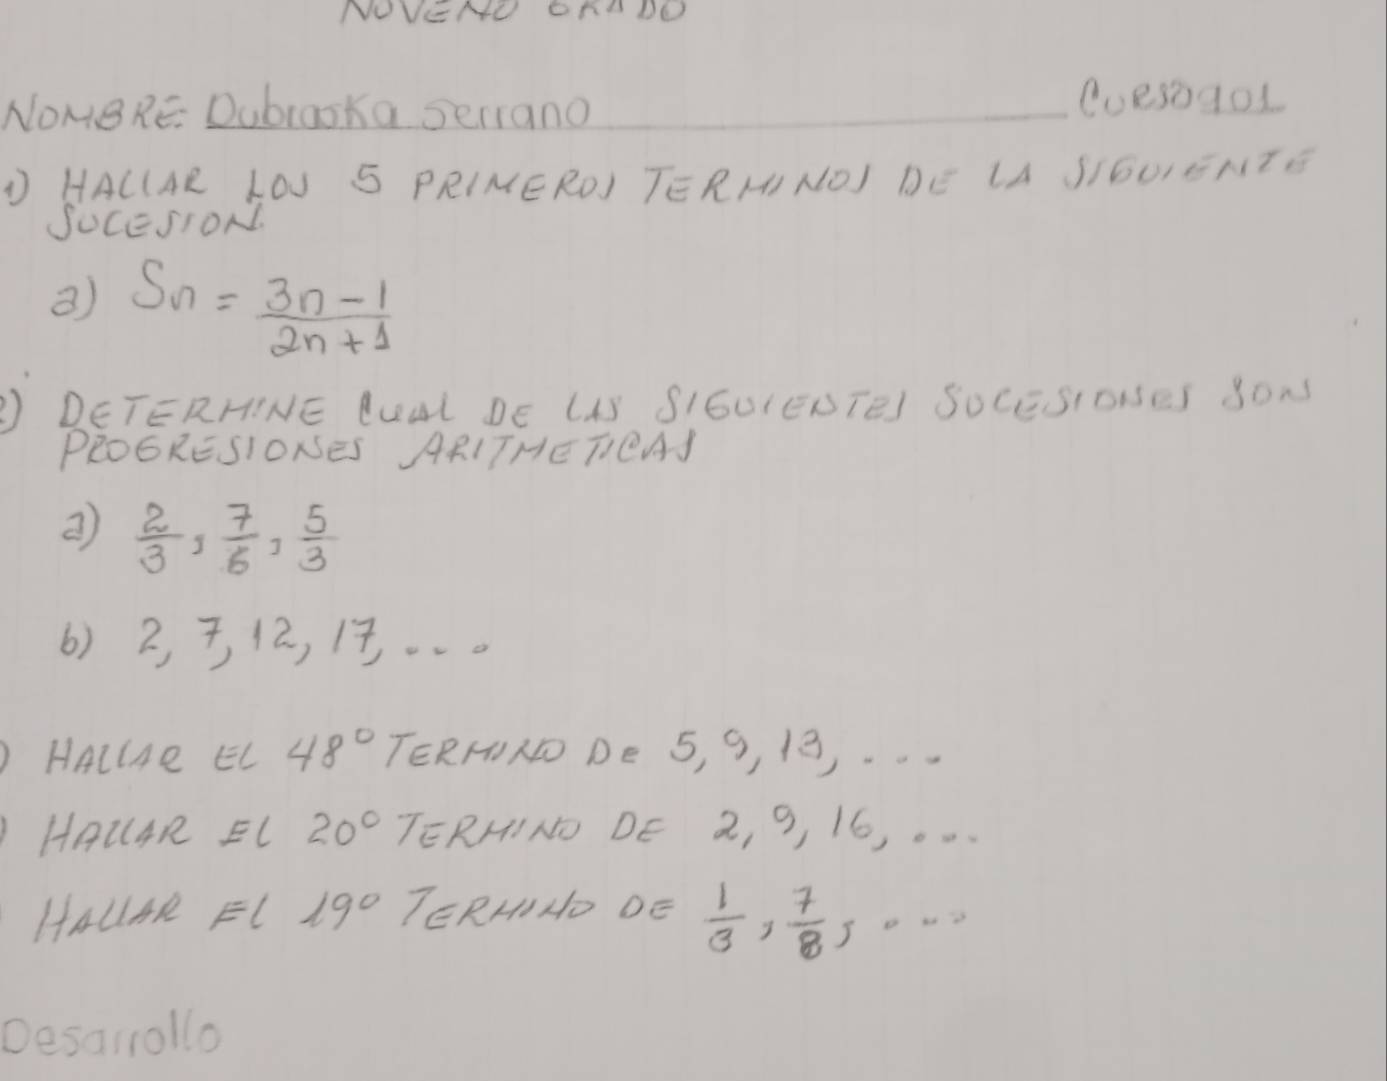 NOVENO GRADO
NOMBRE: Dubraska Serrano CURSO 901
1) HALLAR LOS 5 PRIMEROS TERMINOS DE LA SIGUIENTE
SUCESION.
a) Sn = \frac{3n-1}{2n+1}
2) DETERMINE CUAL DE LAS SIGUIENTES SUCESIONES SON
PROGRESIONES ARITMETICAS
a) 2/3, 7/6, 5/3
b) 2, 7, 12, 17, ....
) HALLAR EL 48° TERMINO DE 5, 9, 13, ....
) HALLAR EL 20° TERMINO DE 2, 9, 16, ....
HALLAR EL 19° TERMINO DE 1/3, 7/8, ....
Desarrollo